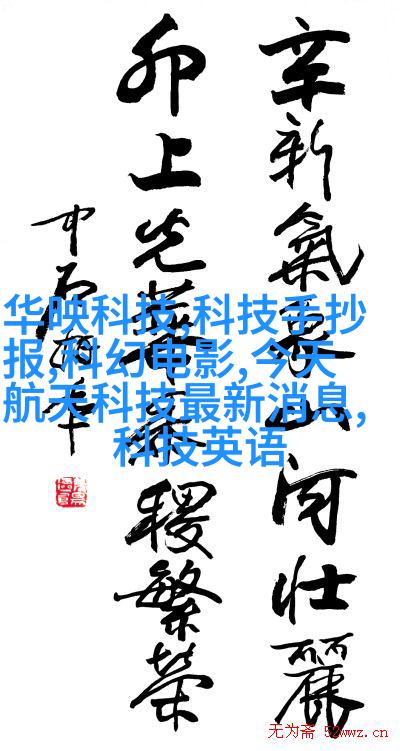 辛新氣象山河壮麗
卯上光華稷繁榮
中石
华映科技,科技手抄
报,科幻电影,今天
航天科技最新消息,
科技英语
无为斋 52wwz.cn